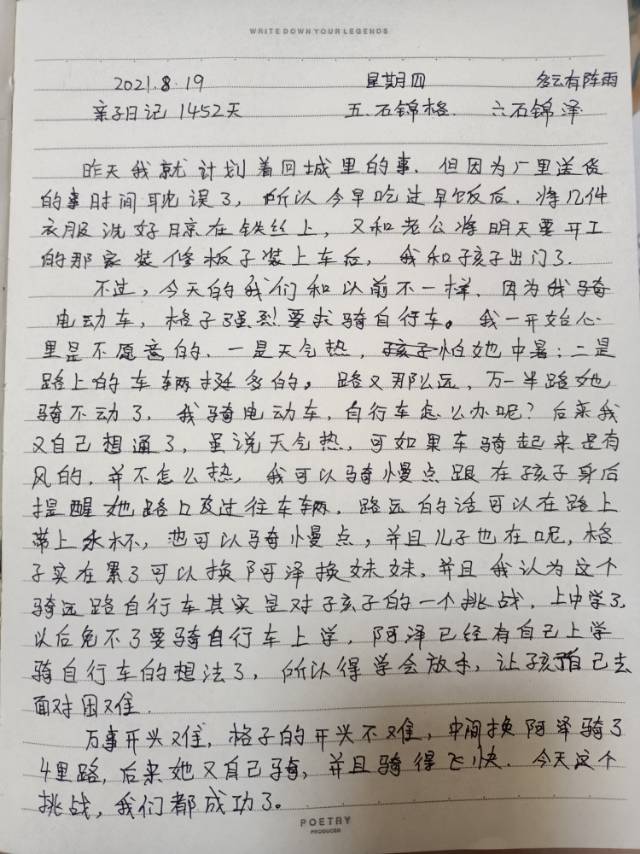 WRITE DOWN YOUR LEGENDS
2021.8.19 星期四 多云有阵雨
亲子日记1452天 五.石锦格. 六石锦泽
昨天我就计划着回城里的事.但因为厂里送货
的事时间耽误了,所以今早吃过早饭后.将几件
衣服洗好晾在铁丝上,又和老公将明天要开工
的那家装修板子装上车后,我和孩子出门了.
不过,今天的我们和以前不一样.因为我骑
电动车,格子强烈要求骑自行车。我一开始心
里是不愿意的.一是天气热,孩子怕她中暑;二是
路上的车辆挺多的。路又那么远,万一半路她
骑不动了.我骑电动车,自行车怎么办呢?后来我
又自己想通了,虽说天气热,可如果车骑起来是有
风的.并不怎么热,我可以骑慢点跟在孩子身后
提醒她路口及过往车辆.路远的话可以在路上
带上水杯,也可以骑慢点,并且儿子也在呢,格
子实在累了可以换阿泽换妹妹.并且我认为这个
骑远路自行车其实是对子孩子的一个挑战.上中学了.
以后免不了要骑自行车上学,阿泽已经有自己上学
骑自行车的想法了,所以得学会放手,让孩子自己去
面对困难.
万事开头难,格子的开头不难,中间换阿泽骑了
4里路,后来她又自己骑,并且骑得飞快.今天这个
挑战,我们都成功了。
POETRY
PRODUCER